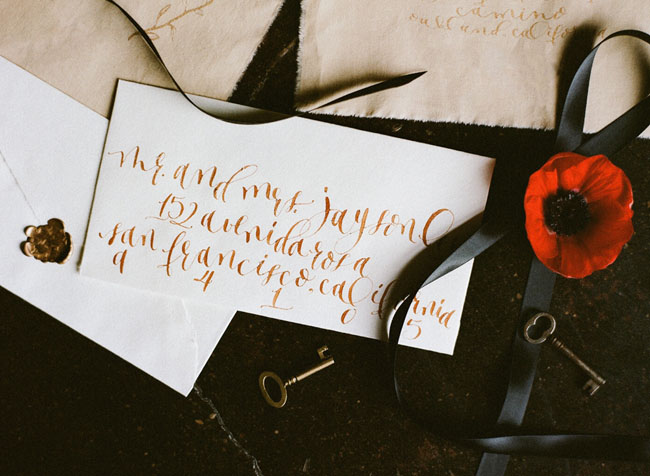 camino
oakland, california
mr. and mrs. jayson
152 avenida rosa
san francisco, california
9 4 1 0 5